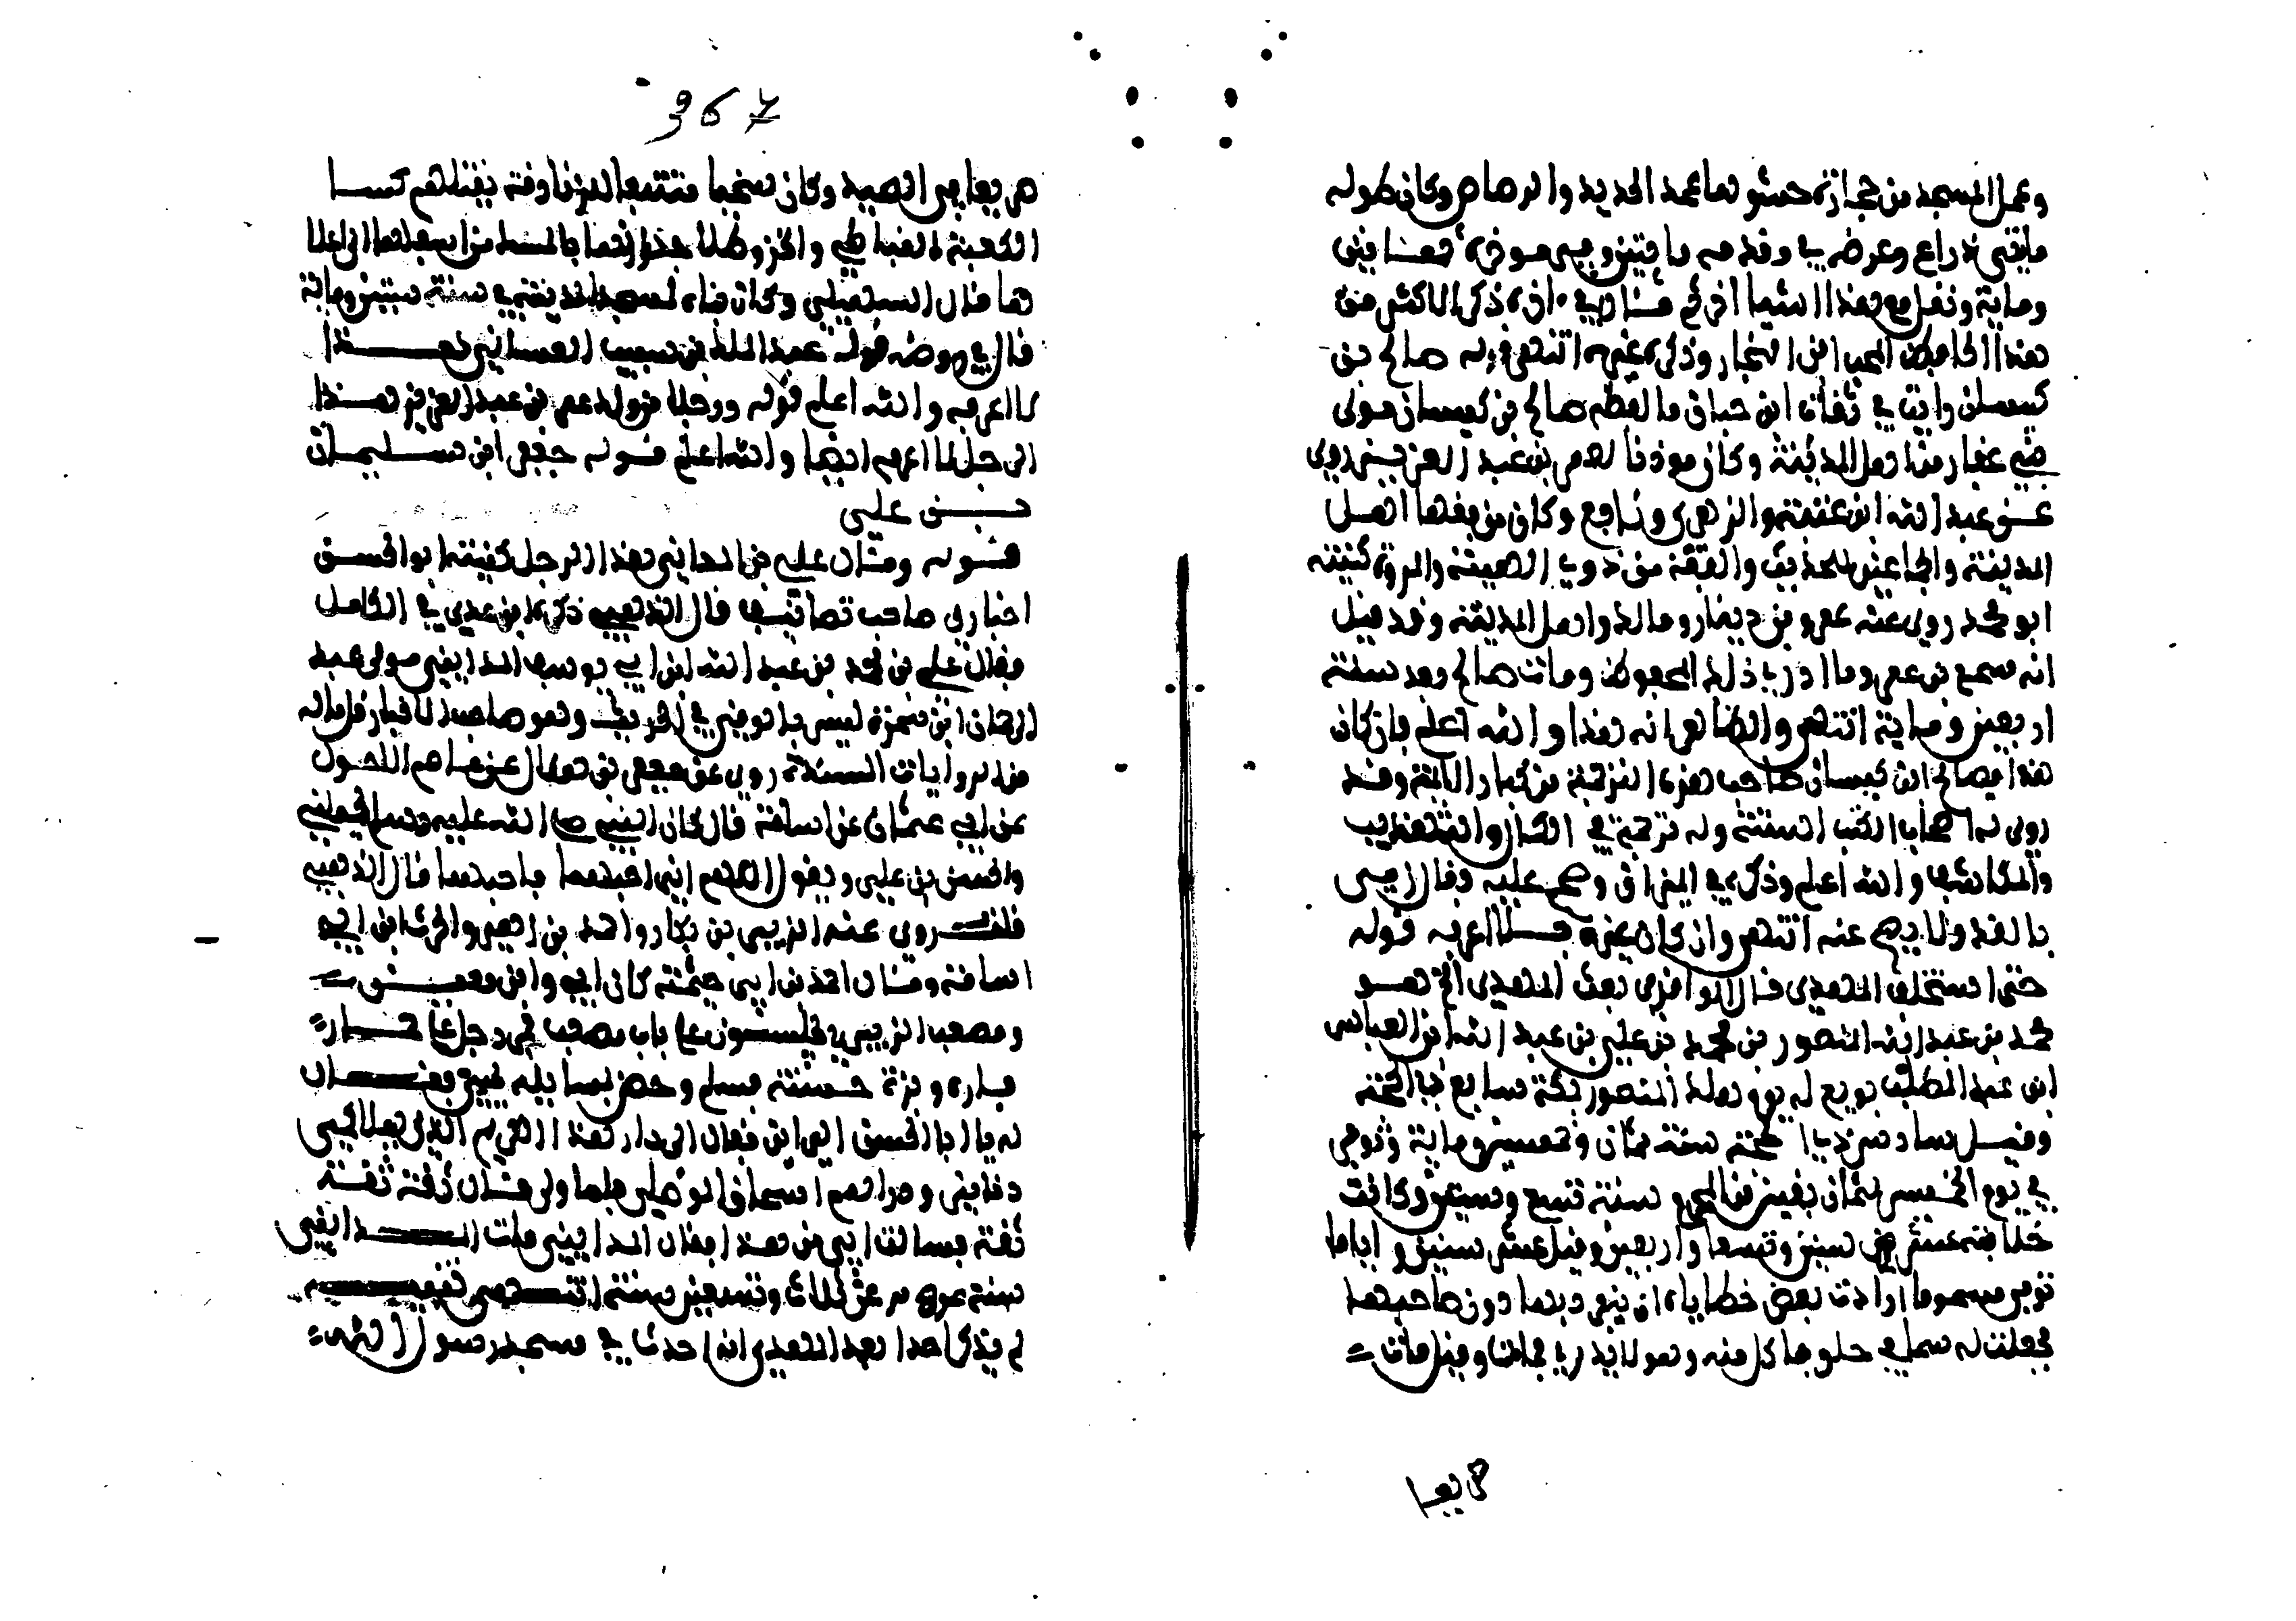 وعمل المسجد من حجارة حشوها عمد الحديد والرصاص وكان طوله
مايتي ذراع وعرضه في وقدمه مايتين وهي موخره ثمانين
وماية ونقل مع هذا اشيا اخر ثم قال في ذكر الاكثر من
هذا الحافظ المحب ابن النجار وذكره غيره انتهى قوله صالح بن
كيسان رايت في ثقات ابن حبان ما لفظه صالح بن كيسان مولى
بني غفار من اهل المدينة وكان موذنا لعمر بن عبد العزيز يروي
عن عبيد الله ابن عتبة والزهري ونافع وكان من فقها اهل
المدينة والجامعين للحديث والفقه من ذوي الهيئة والمروة كنيته
ابو محمد روى عنه عمرو بن دينار ومالك واهل المدينة وقد قيل
انه سمع بن عمر وما ادري ذلك المحفوظ ومات صالح بعد سنة
اربعين وماية انتهى والظاهر انه هذا والله اعلم فان كان
هذا فصالح ابن كيسان صاحب هذه الترجمة من كبار الايمة وقد
روى له اصحاب الكتب الستة وله ترجمة في الكمال والتهذيب
والكاشف والله اعلم وذكره في الميزان وصحح عليه وقال رمي
بالقدر ولا يصح عنه انتهى وان كان غيره فلا اعرفه قوله
حتى استخلف المهدي قال الواقدي بعث المهدي الخ هو
محمد بن عبد الله المنصور بن محمد بن علي بن عبد الله ابن العباس
ابن عبد المطلب بويع له يوم هلك المنصور بمكة سابع ذي الحجة
وقيل سادس ذي الحجة سنة ثمان وخمسين وماية وتوفي
في يوم الخميس لثمان بقين من المحرم سنة تسع وستين وكانت
خلافته عشر سنين وتسعا واربعين وقيل عشر سنين واياما
توفي مسموما ارادت بعض حظاياه ان تنفرد به دون صاحبتها
فجعلت له سما في حلو فاكل منه وهو لا يدري فمات وقيل مات
مريعا
367
مر يعا في الصيد وكان سخيا متتبعا للزنادقة بقتلهم كسا
الكعبة القباطي والخز وطلا جدرانها بالمسك من اسفلها الى اعلا
ها قال السهيلي وكان بناه لمسجد المدينة في سنة ستين وماية
قال في روضه قوله عبد الملك بن شبيب الغساني هذا
لا اعرفه والله اعلم قوله ورجلا من ولد عمر بن عبد العزيز هذا
الرجل لا اعرفه ايضا والله اعلم قوله جعفر ابن سليمان
بن علي
قوله وقال علي بن المدايني هذا الرجل كنيته ابو الحسن
اخباري صاحب تصانيف قال الذهبي ذكره ابن عدي في الكامل
فقال علي بن محمد بن عبد الله ابن ابي يوسف المدايني مولى عبد
الرحمان ابن سمرة ليس بالقوي في الحديث وهو صاحب الاخبار قل ماله
من الروايات المسندة روى عن جعفر بن هلال عن عاصم الاحول
عن ابي عثمان عن اسامة قال كان النبي صلى الله عليه وسلم ياخذني
والحسن بن علي ويقول اللهم اني احبهما فاحبهما قال الذهبي
قلت روى عنه الزبير بن بكار واحمد بن زهير والحرث ابن ابي
اسامة وقال احمد بن ابي خيثمة كان ابي وابن معين
ومصعب الزبيري يجلسون على باب مصعب فمر رجل على حمار
فاره وبزة حسنة فسلم وخص بمسايله يحيى فقال
له يا ابا الحسن الى اين فقال الى دار هذا الكريم الذي يملا كمي
دنانير ودراهم اسحاق الموصلي فلما ولى قال ثقة ثقة
ثقة فسالت ابي من هذا فقال المدايني مات المدايني
سنة اربع عن ثلاث وتسعين سنة انتهى تنبيه
لم يذكر احدا بعد المهدي انه احدث في مسجد رسول الله